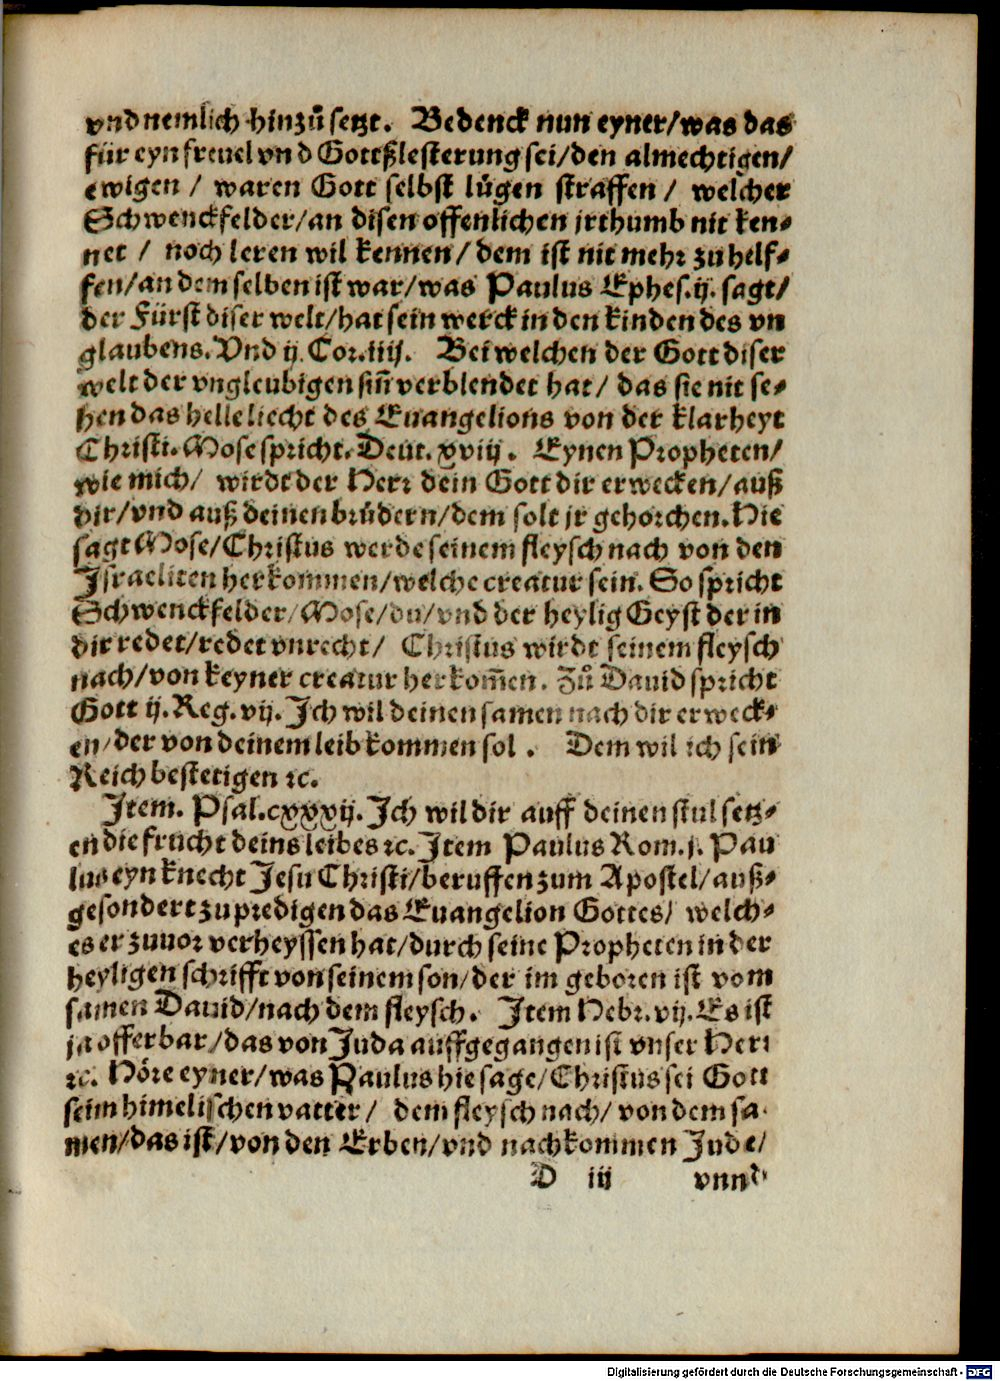 vnd nemlich hinzů setzt. Bedenck nun eyner/was das
für eyn freuel vnd Gottßlesterung sei/den almechtigen/
ewigen / waren Gott selbst lügen straffen / welcher
Schwenckfelder/an disen offenlichen jrthumb nit ken⸗
net / noch leren wil kennen/ dem ist nit mehr zu helf⸗
fen/an dem selben ist war/was Paulus Ephes.ij. sagt/
der Fürst diser welt/hat sein werck in den kinden des vn
glaubens. Vnd ij. Cor.iiij. Bei welchen der Gott diser
welt der vngleubigen siñ verblendet hat/ das sie nit se⸗
hen das helle liecht des Euangelions von der klarheyt
Christi. Mose spricht. Deut. xviij. Eynen Propheten/
wie mich/ wirdt der Herr dein Gott dir erwecken/auß
dir/vnd auß deinen brüdern/dem solt jr gehorchen. Hie
sagt Mose/Christus werde seinem fleysch nach von den
Israeliten herkommen/welche creatur sein. So spricht
Schwenckfelder/Mose/du/vnd der heylig Geyst der in
dir redet/redet vnrecht/ Christus wirdt seinem fleysch
nach/von keyner creatur herkom̃en. Zů Dauid spricht
Gott ij. Reg. vij. Ich wil deinen samen nach dir erweck⸗
en/der von deinem leib kommen sol. Dem wil ich sein
Reich bestetigen ꝛc.
Item. Psal.cxxxij. Ich wil dir auff deinen stul setz⸗
en die frucht deins leibes ꝛc. Item Paulus Rom.j. Pau
lus eyn knecht Jesu Christi/beruffen zum Apostel/auß⸗
gesondert zu predigen das Euangelion Gottes/ welch⸗
es er zuuor verheyssen hat/durch seine Propheten in der
heyligen schrifft von seinem son/der im geboren ist vom
samen Dauid/nach dem fleysch. Item Hebr. vij. Es ist
ja offerbar/das von Juda auffgegangen ist vnser Herr
ꝛc. Höre eyner/was Paulus hie sage/Christus sei Gott
seim himelischen vatter/ dem fleysch nach/ von dem sa⸗
men/das ist/von den Erben/vnd nachkommen Jude/
D iij vnnd
Digitalisierung gefördert durch die Deutsche Forschungsgemeinschaft - DFG